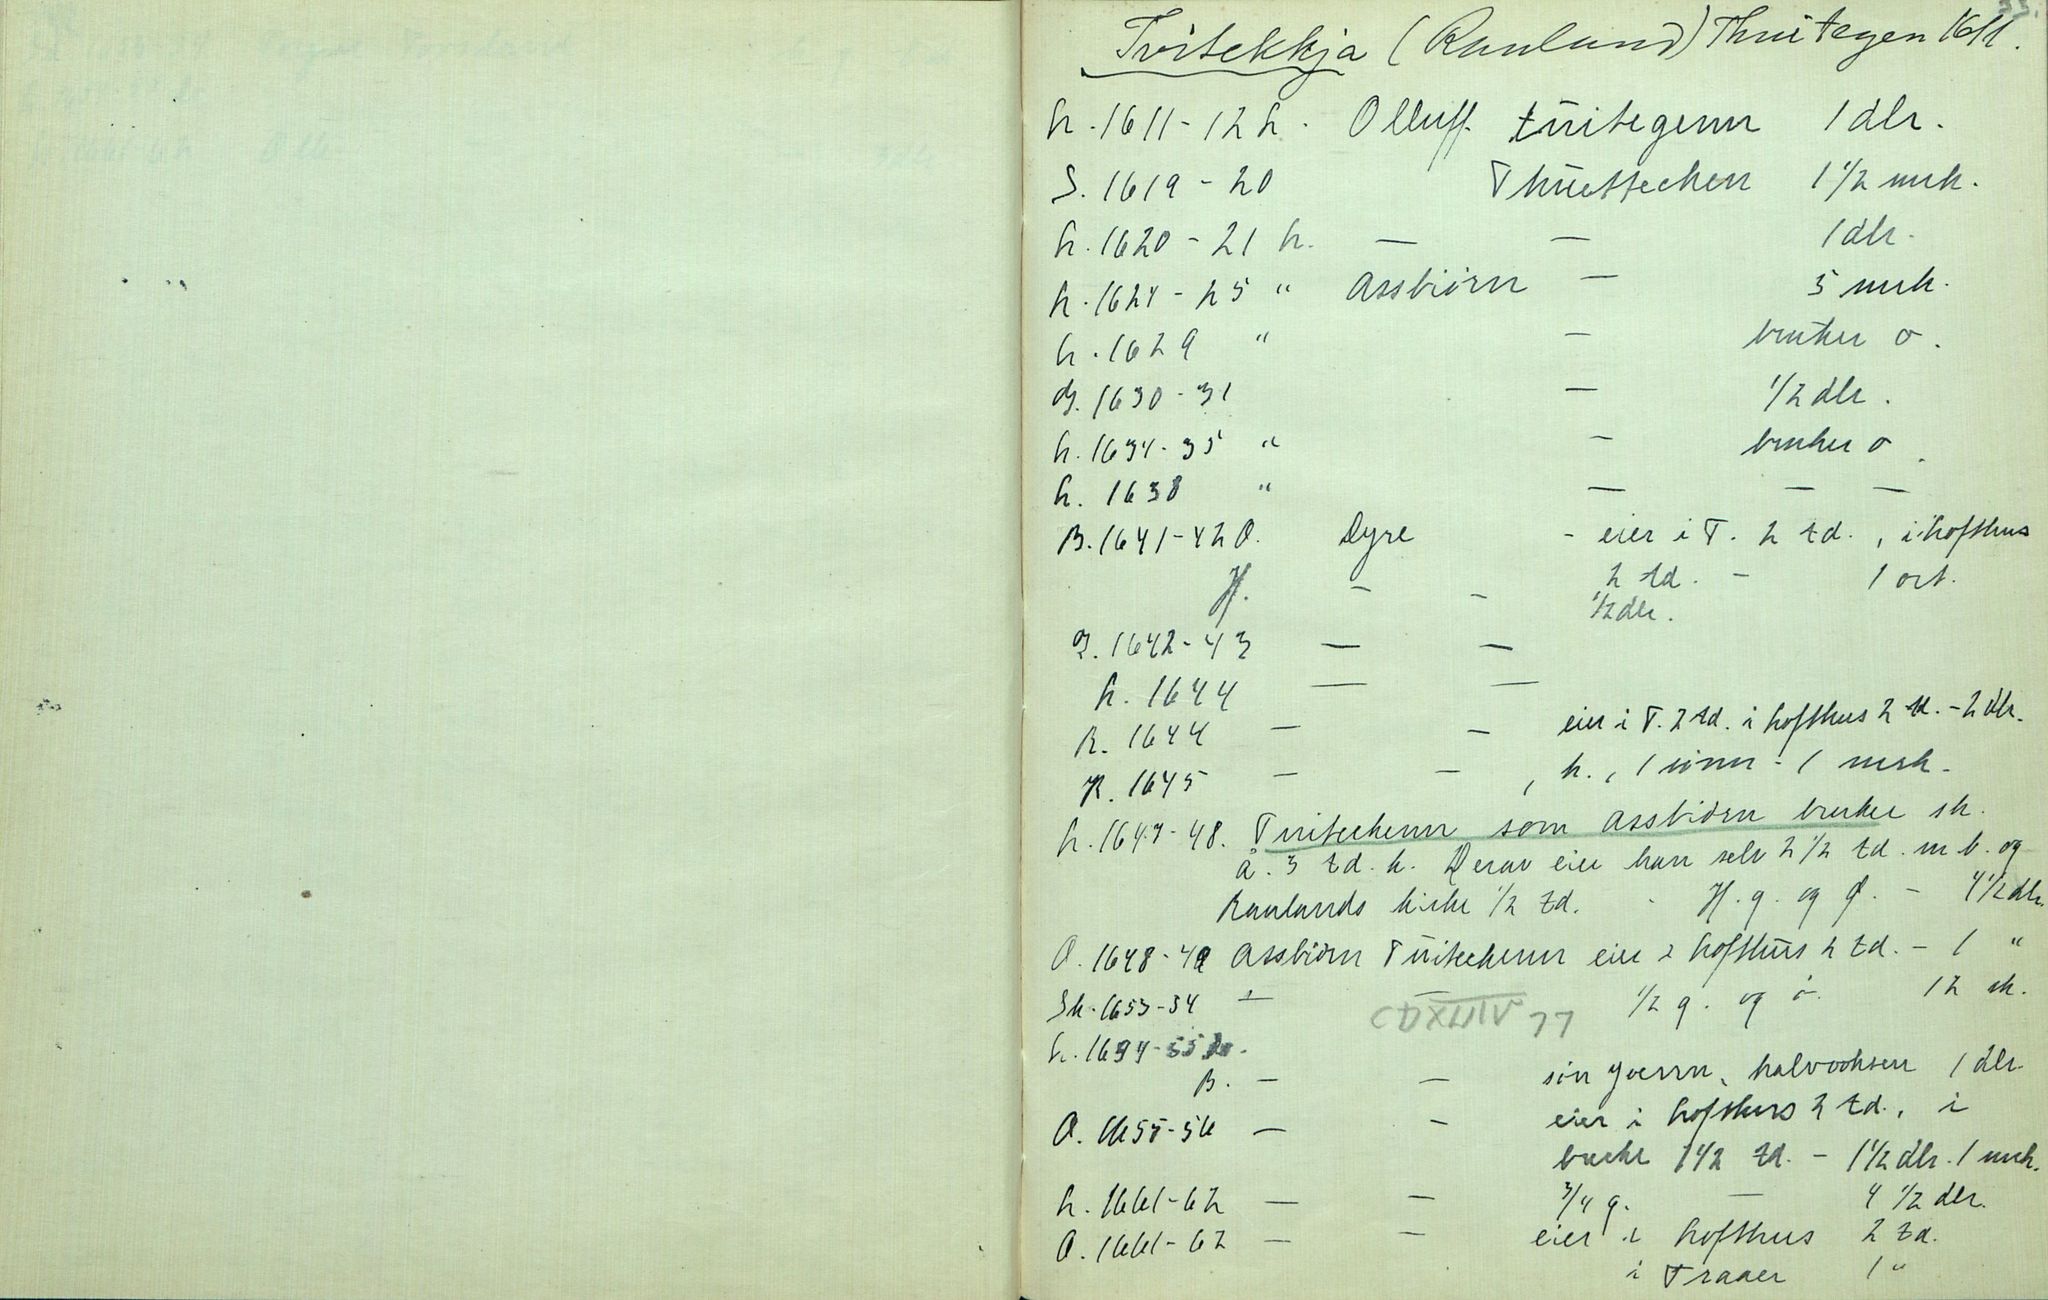 33.
Tvitekkja (Rauland) Thuitegen 1611.
h. 1611-12 h. Olluff tuitegenn 1 dlr.
S. 1619-20 Thuettechen 1 1/2 mrk.
h. 1620-21 h. — — 1 dlr.
h. 1624-25 " Assbiørn — 5 mrk.
h. 1629 " — bruker ø.
G. 1630-31 — 1/2 dlr.
h. 1634-35 " — bruker ø.
h. 1638 " — — —
B. 1641-42 O. Dyre - eier i T. 2 td., i hofthus
2 td. - 1 ort.
H. - - 1/2 dlr.
G. 1642-43 — —
h. 1644 — —
R. 1644 — — eier i T. 2 td. i hofthus 2 td. - 2 dlr.
K. 1645 — — , h., 1 sönn - 1 mrk.
h. 1647-48. Tuitechenn som Assbiörn bruker sk.
å. 3 td. k. Derav eier han selv 2 1/2 td. m b. og
Raulands kirke 1/2 td. - H. g. og Ø. - 4 1/2 dlr.
O. 1648-49 Assbiörn Tuitechenn eier i hofthus 2 td. - 1 "
Sk. 1653-54 — — 1/2 g. og ö. 12 sk.
CDXLIIV 77
h. 1654-55
B. — — sin Joernn, halvooksen 1 dlr.
O. 1655-56 — - eier i hofthus 2 td., i
1 1/2 td. - 1 1/2 dlr. 1 mrk.
h. 1661-62 — — 3/4 g. — 4 1/2 dlr.
O. 1661-62 — - eier i hofthus 2 td.
i Traaer 1 "